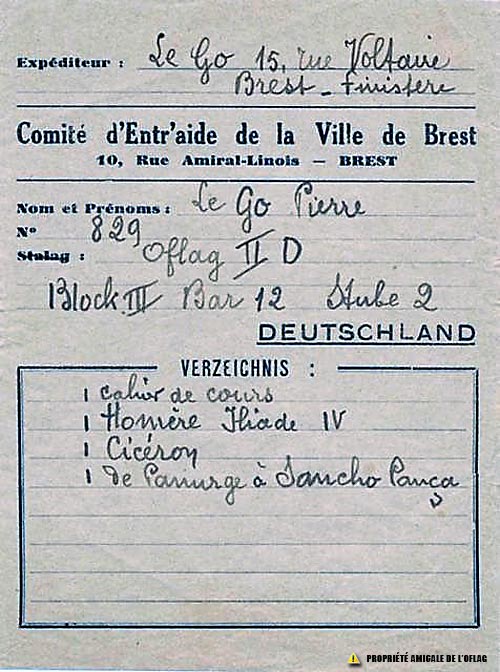 Expéditeur : Le Go 15, rue Voltaire
Brest - Finistere
Comité d'Entr'aide de la Ville de Brest
10, Rue Amiral-Linois — BREST
Nom et Prénoms : Le Go Pierre
N° 829
Stalag : Oflag II D
Block III Bar 12 Stube 2
DEUTSCHLAND
VERZEICHNIS :
1 cahier de cours
1 Homère Iliade IV
1 Cicéron
1 de Panurge à Sancho Pança
PROPRIÉTÉ AMICALE DE L'OFLAG